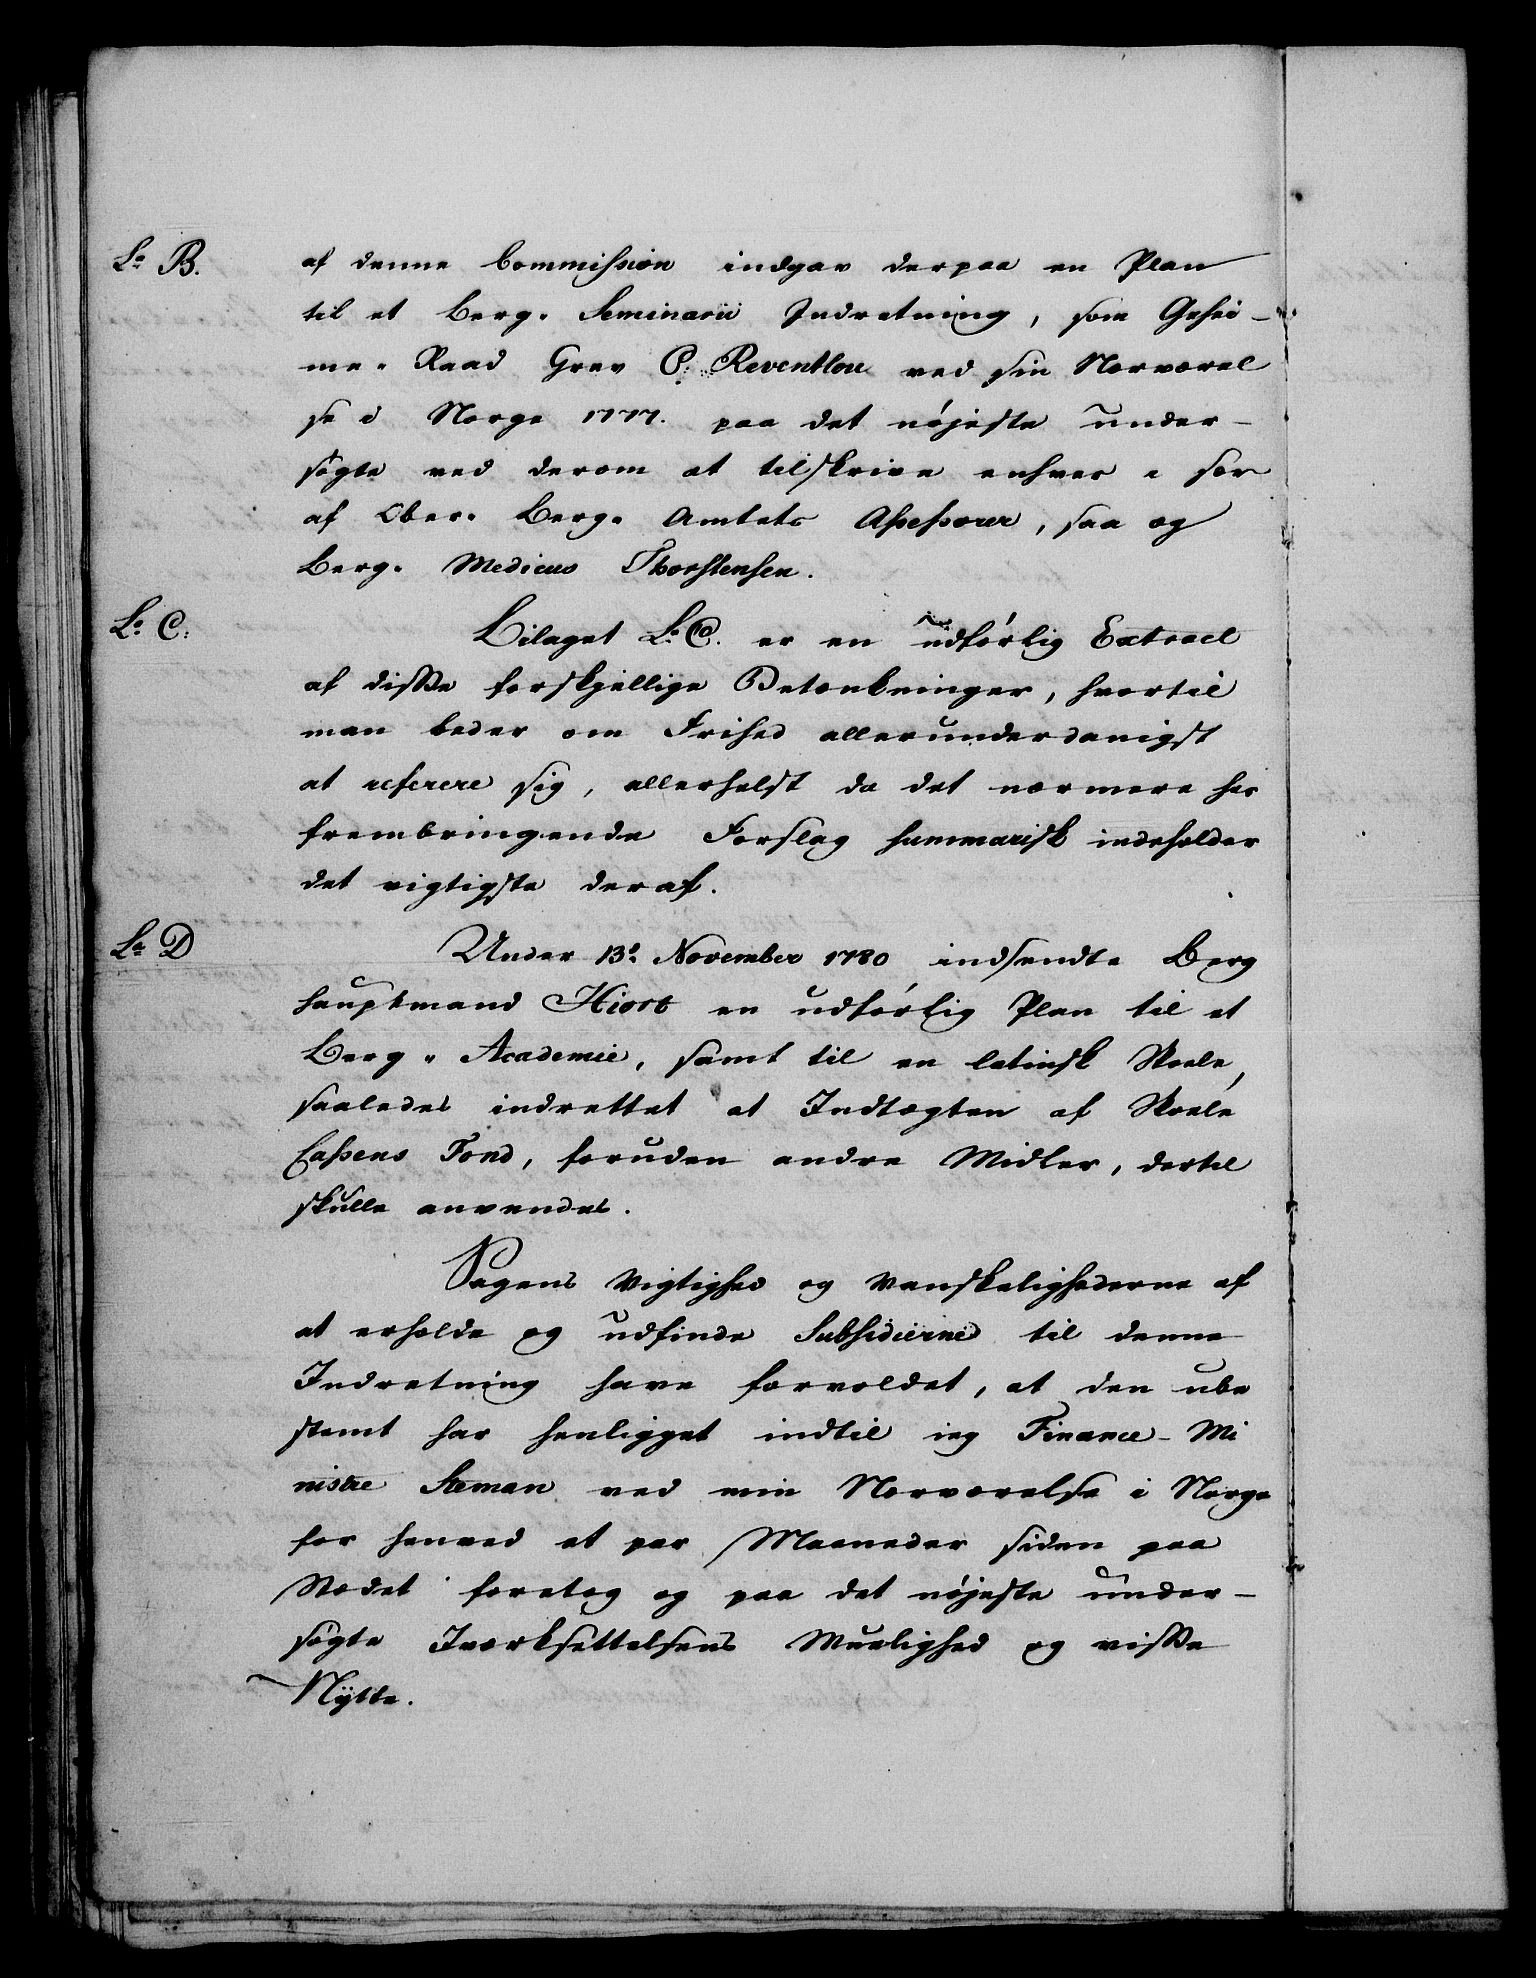 La B.
af denne Commission indgav derpaa en Plan
til et Berg- Seminarii Indretning, som Gehei-
me- Raad Grev C: Reventlou ved sin Nærværel
se i Norge 1777. paa det nøjeste under-
søgte ved derom at tilskrive enhver i sær
af Ober- Berg- Amtets Assessorer, saa og
Berg- Medicus Thorstensen.
La C:
Bilaget La C. er en udførlig Extract
af disse forskjellige Betænkninger, hvortil
man beder om Frihed allerunderdanigst
at referere sig, allerhelst da det nærmere her
frembringende Forslag summarisk indeholder
det vigtigste deraf.
La D
Under 13de November 1780 indsendte Berg
hauptmand Hiort en udførlig Plan til et
Berg- Academie, samt til en latinsk Skole,
saaledes indrettet at Indtægten af Skole
Cassens Fond, foruden andre Midler, dertil
skulle anvendes.
Sagens Vigtighed og Vanskelighederne af
at erholde og udfinde Subsidierne til denne
Indretning have forvoldet, at den ube
stemt har henligget indtil ieg Finance- Mi
nistre Steman ved min Nærværelse i Norge
for henved et par Maaneder siden paa
Stædet foretog og paa det nøjeste under-
søgte Iværksættelsens Muelighed og visse
Nÿtte.